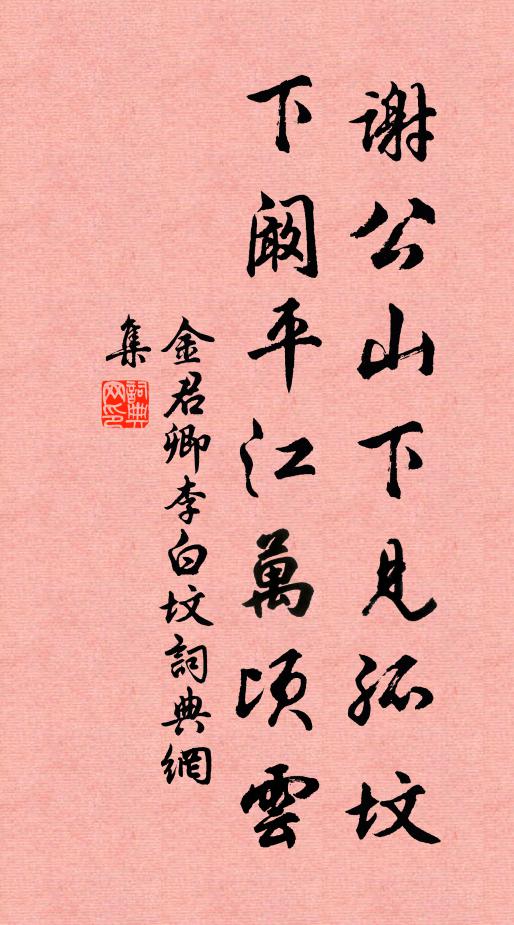 謝公山下見孤坟
下闞平江萬頃雲
金君卿李白坟詞典網
集
詞典网印